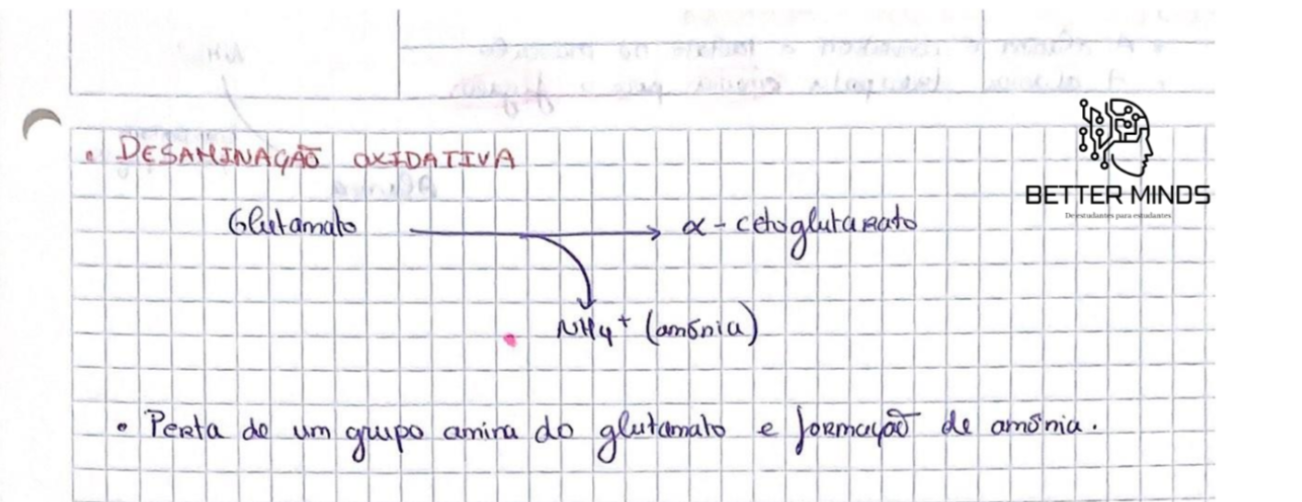 • DESAMINAÇÃO OXIDATIVA
BETTER MINDS
De estudantes para estudantes
Glutamato → α-cetoglutarato
NH4+ (amônia)
• Perta de um grupo amina do glutamato e formação de amônia.